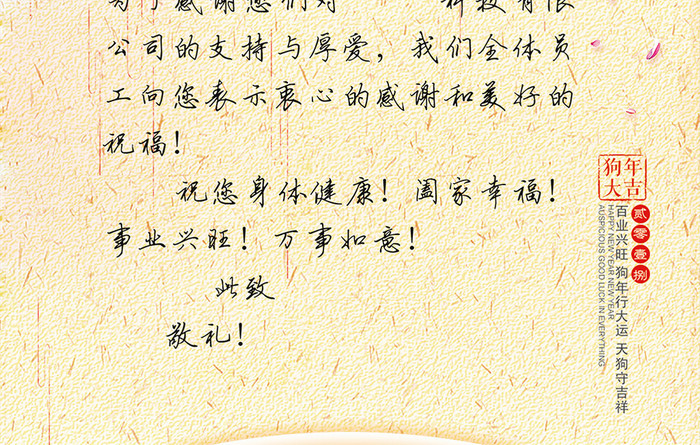 为了感谢您们对 科技有限
公司的支持与厚爱，我们全体员
工向您表示衷心的感谢和美好的
祝福！
祝您身体健康！阖家幸福！
事业兴旺！万事如意！
此致
敬礼！
狗年
大吉
贰零壹捌
百业兴旺 狗年行大运 天狗守吉祥
HAPPY NEW YEAR NEW YEAR
AUSPICIOUS GOOD LUCK IN EVERYTHING